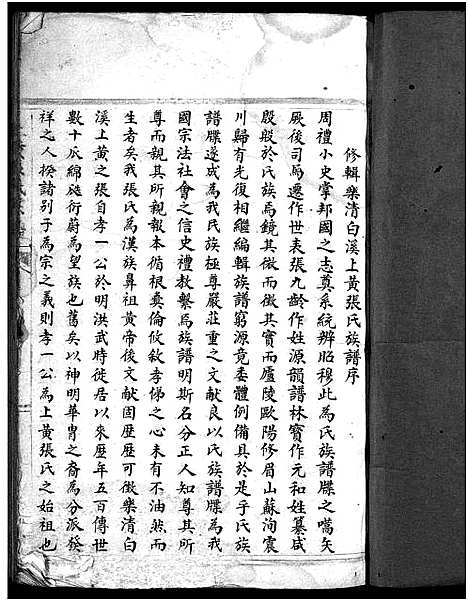 修輯樂清白溪上黃張氏族譜序
周禮小史掌邦國之志奠系統辨昭穆此為氏族譜牒之嚆矢
厥後司馬遷作世表張九齡作姓源韻譜林寶作元和姓纂咸
殷殷於氏族焉鏡其微而徵其實而廬陵歐陽修眉山蘇洵震
川歸有光復相繼編輯族譜窮源竟委體例備具於是乎氏族
譜牒遂成為我民族極尊嚴莊重之文獻良以氏族譜牒為我
國宗法社會之信史禮教繫焉族譜明斯名分正人知尊其所
尊而親其所親報本循根彝倫攸敘孝悌之心未有不油然而
生者矣我張氏為漢族鼻祖黃帝後文獻固歷歷可徵樂清白
溪上黃之張自孝一公於明洪武時徙居以來歷年五百傳世
數十瓜綿瓞衍蔚為望族也舊矣以神明華胄之裔為分派發
祥之人揆諸別子為宗之義則孝一公為上黃張氏之始祖也